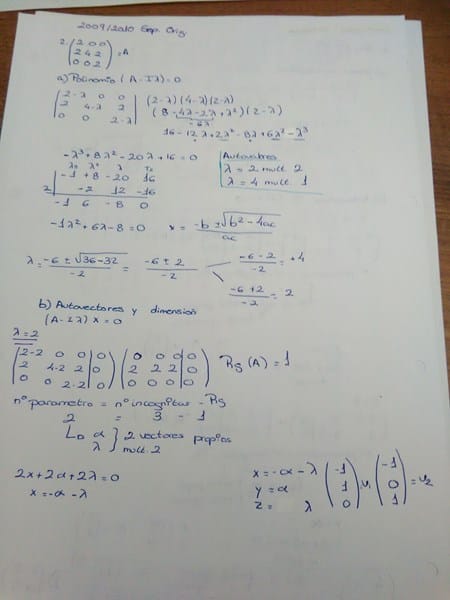 2009/2010 Sep. Orig
2. (2 0 0
2 4 2
0 0 2) = A
a) Polinomio (A - Iλ) = 0
|2-λ 0 0
2 4-λ 2
0 0 2-λ|
(2-λ)(4-λ)(2-λ)
(8-4λ-2λ+λ²)(2-λ)
-6λ
16-12λ+2λ²-8λ+6λ²-λ³
-λ³+8λ²-20λ+16=0
λ³ λ² λ
-1 +8 -20 16
2 -2 12 -16
-1 6 -8 0
Autovalores
λ = 2 mult. 2
λ = 4 mult. 1
-1λ²+6λ-8=0 x = -b ± √b²-4ac / ac
λ = -6 ± √36-32 / -2 = -6 ± 2 / -2
-6-2 / -2 = +4
-6+2 / -2 = 2
b) Autovectores y dimensión
(A-Iλ) x = 0
λ=2
(2-2 0 0 | 0
2 4-2 2 | 0
0 0 2-2 | 0)
(0 0 0 | 0
2 2 2 | 0
0 0 0 | 0)
Rg (A) = 1
nº parametro = nº incognitas - Rg
2 = 3 - 1
α
λ } 2 vectores propios
mult. 2
2x+2α+2λ=0
x=-α-λ
x=-α-λ
y=α
z= λ
(-1
1
0) u₁
(-1
0
1) = u₂